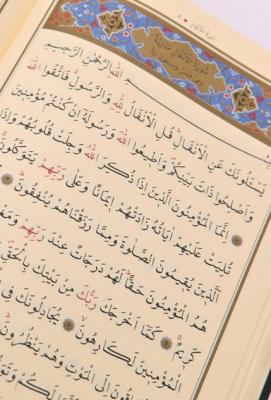 سورة الأنفال
سورة الأنفال مدنية
بسم الله الرحمن الرحيم
يَسْـَٔلُونَكَ عَنِ الْاَنْفَالِ قُلِ الْاَنْفَالُ لِلّٰهِ وَالرَّسُولِ فَاتَّقُوا اللّٰهَ
وَاَصْلِحُوا ذَاتَ بَيْنِكُمْ وَاَطِيعُوا اللّٰهَ وَرَسُولَهُ اِنْ كُنْتُمْ مُؤْمِنِينَ
اِنَّمَا الْمُؤْمِنُونَ الَّذِينَ اِذَا ذُكِرَ اللّٰهُ وَجِلَتْ قُلُوبُهُمْ وَاِذَا
تُلِيَتْ عَلَيْهِمْ اٰيَاتُهُ زَادَتْهُمْ اِيمَانًا وَعَلٰى رَبِّهِمْ يَتَوَكَّلُونَ
اَلَّذِينَ يُقِيمُونَ الصَّلٰوةَ وَمِمَّا رَزَقْنَاهُمْ يُنْفِقُونَ
هُمُ الْمُؤْمِنُونَ حَقًّا لَهُمْ دَرَجَاتٌ عِنْدَ رَبِّهِمْ وَمَغْ
كَرِيمٌ كَمَا اَخْرَجَكَ رَبُّكَ مِنْ بَيْتِكَ بِالْحَقِّ
الْمُؤْمِنِينَ لَكَارِهُونَ يُجَادِلُونَكَ فِى
يُسَاقُونَ اِلَى الْمَوْتِ وَهُمْ يَنْظُرُونَ
لَكُمْ وَتَوَدُّ